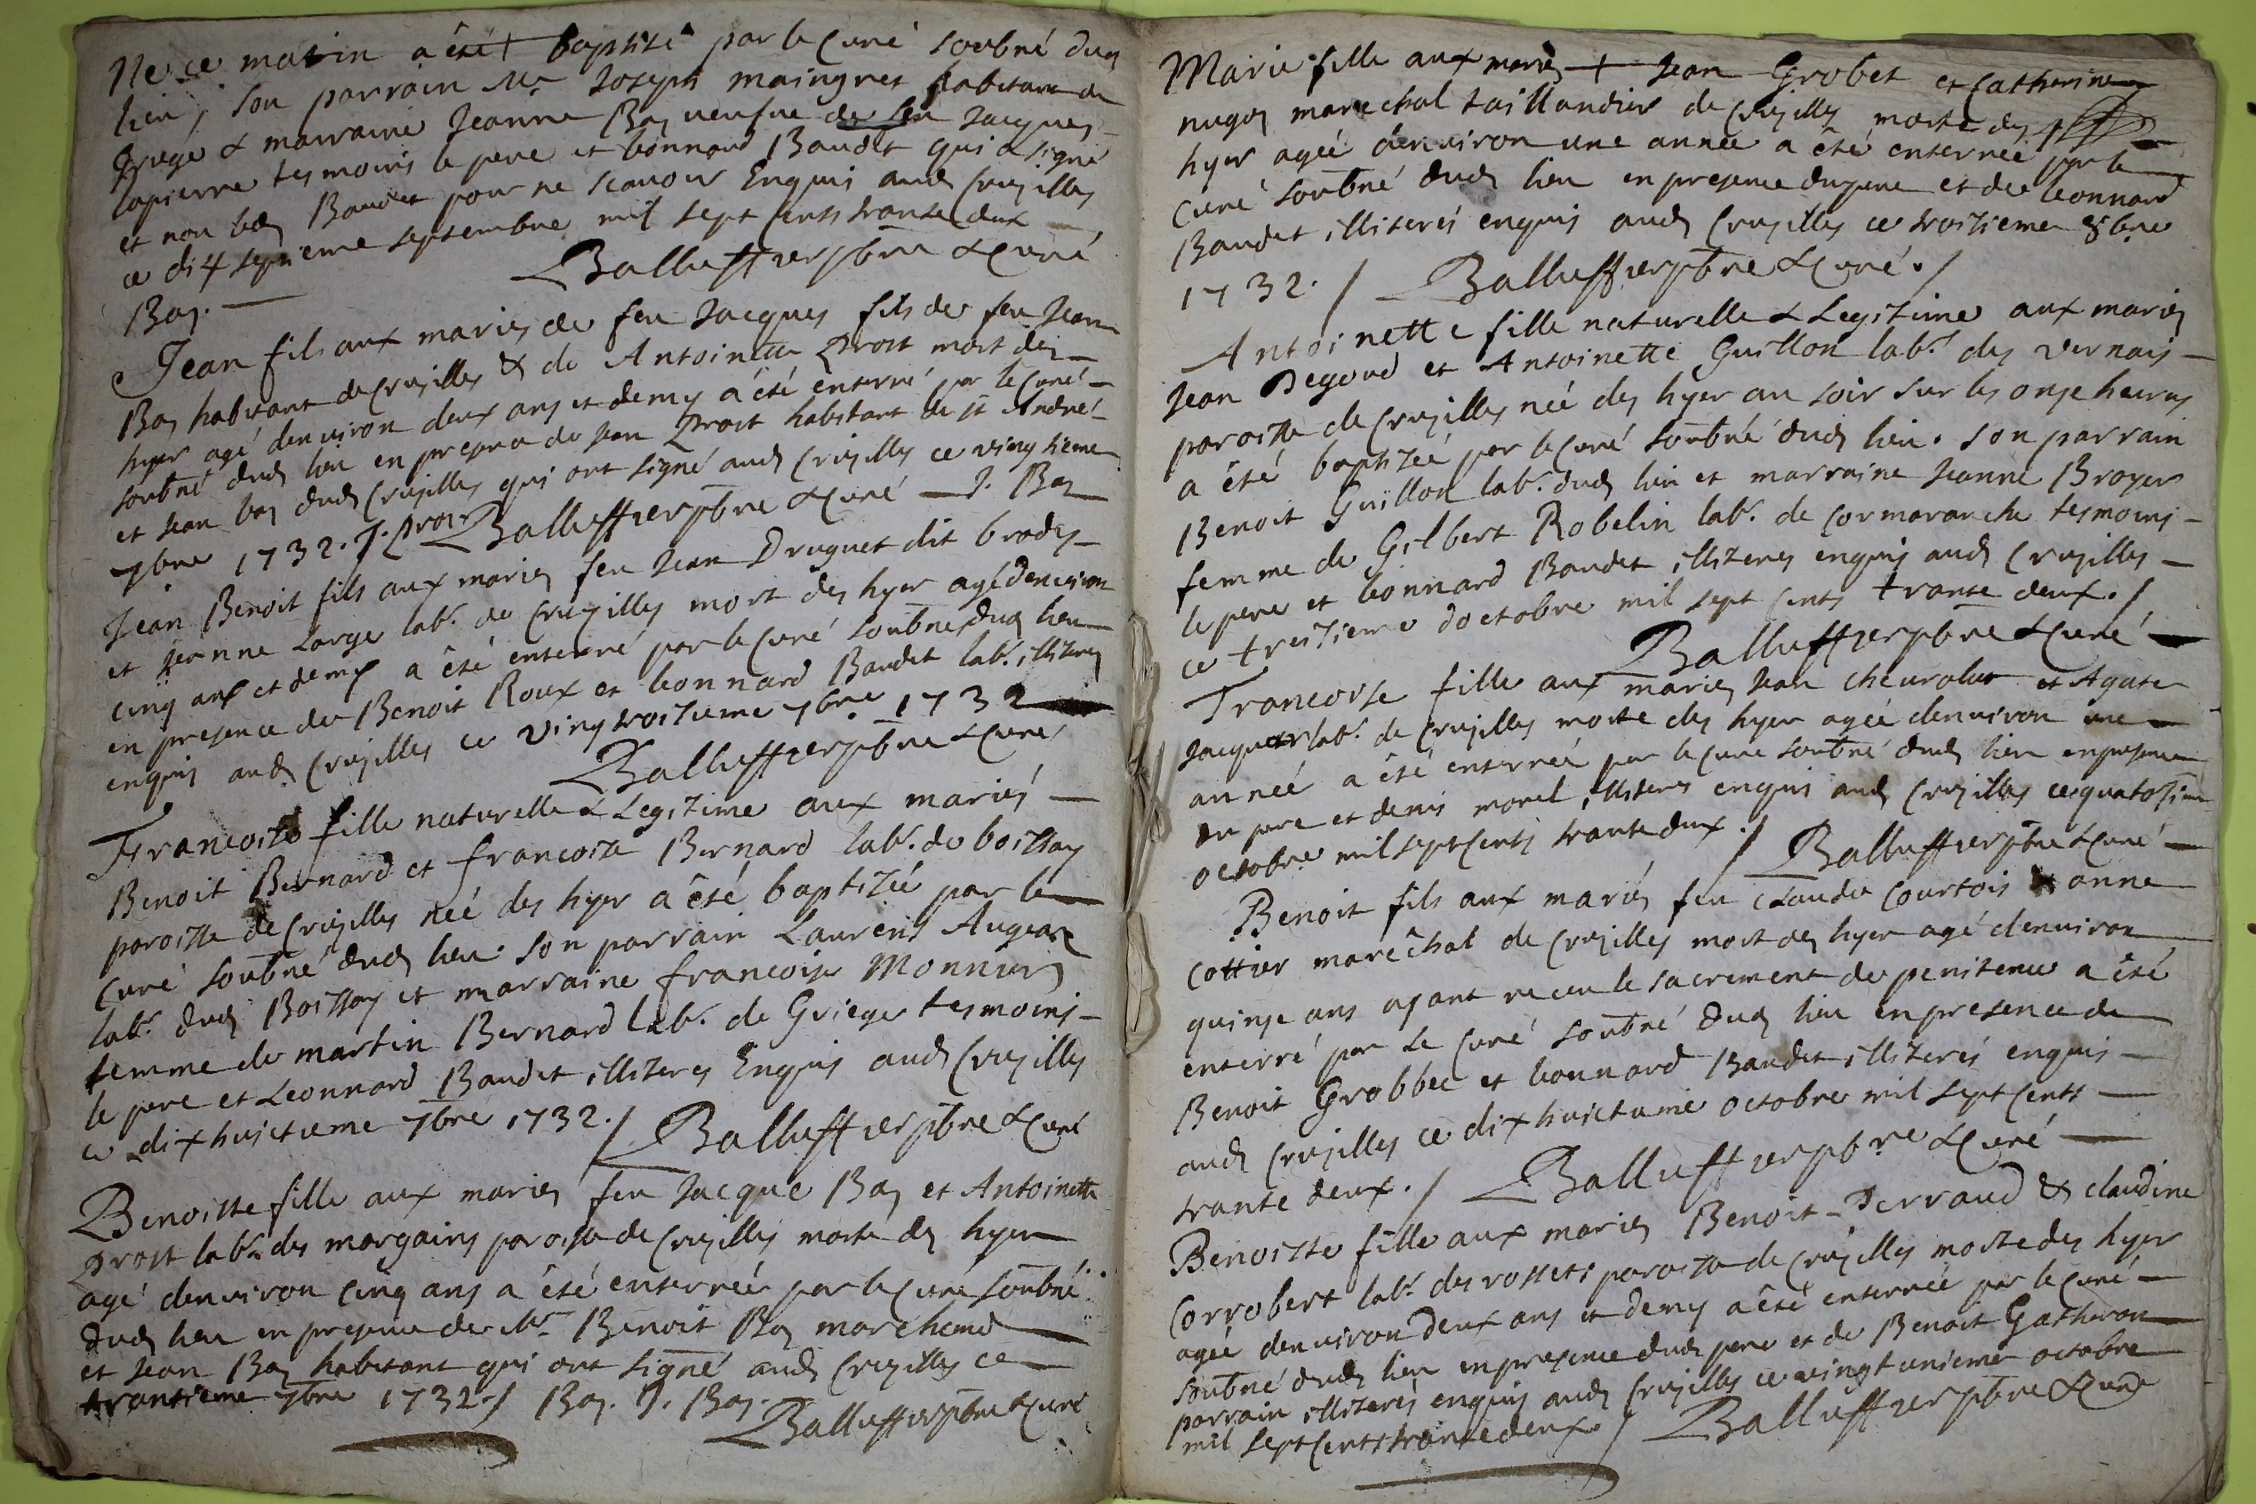 Ne ce matin a été baptisé par le Curé soubné dud
lieu, son parrain Mr Joseph maingret habitant de
Griege & marraine Jeanne Bay veufve de feu Jacques
lapierre tesmoins le pere et leonnard Baudet qui a signé
et non led Baudet pour ne scavoir Enquis aud Crusilles
ce dix septieme septembre mil sept cents trante deux
Bay. Balluffier pbre & Curé
Jean fils aux mariés de feu Jacques fils de feu Jean
Bay habitant de Crusilles & de Antoinette Prost mort des
hyer agé denviron deux ans et demy a été enterré par le Curé
soubné dud lieu en presence de Jean Prost habitant de st André
et Jean bay dud Crusilles qui ont signé aud Crusilles ce vingtieme
7bre 1732. J. Prost Balluffier pbre & Curé J. Bay
Jean Benoit fils aux mariés feu Jean Druguet dit brodes
et Jeanne Large labr. de Crusilles mort des hyer agé denviron
cinq ans et demy a été enterré par le Curé soubné dud lieu
en presence de Benoit Roux et leonnard Baudet labr. illiterés
enquis aud Crusilles ce vingtroisieme 7bre 1732
Balluffier pbre & Curé
Francoise fille naturelle & Legitime aux mariés
Benoit Bernard et francoise Bernard labr. de boissay
paroisse de Crusilles née des hyer a été baptizée par le
Curé soubné dud lieu. son parrain Laurens Augras
labr. dud Boissay et marraine francoise Monnier
femme de martin Bernard labr. de Griege tesmoins
le pere et Leonnard Baudet illiterés Enquis aud Crusilles
ce dixhuictieme 7bre 1732./ Balluffier pbre & Curé
Benoiste fille aux mariés feu Jacque Bay et Antoinette
Prost labr des margains paroisse de Crusilles morte des hyer
agé denviron cinq ans a été enterrée par le Curé soubné
dud lieu en presence de Mr. Benoit Bay marchand
et Jean Bay habitant qui ont signé aud Crusilles ce
trantieme 7bre 1732./ Bay. J. Bay.
Balluffier pbre & Curé
Marie fille aux mariés Jean Grobet et Catherine
nugo marechal taillandier de Crusilles morte des
hyer agée denviron une année a été enterrée par le
Curé soubné dud lieu en presence du pere et de leonnard
Baudet illiterés enquis aud Crusilles ce troisieme 8bre
1732./ Balluffier pbre & Curé./
Antoinette fille naturelle & Legitime aux mariés
Jean Degoud et Antoinette Guillon labr. des vernais
paroisse de Crusilles née des hyer au soir sur les onse heures
a été baptizée par le Curé soubné dud lieu. son parrain
Benoit Guillon labr. dud lieu et marraine Jeanne Broyer
femme de Gilbert Robelin labr. de Cormaranche tesmoins
le pere et leonnard Baudet illiteres enquis aud Crusilles
ce treisieme doctobre mil sept cents trante deux./
Balluffier pbre & Curé
Francoise fille aux mariés Jean chevrolat et Agate
Jacquet labr. de Crusilles morte des hyer agée denviron une
année a été enterrée par le Curé soubné dud lieu en presence
du pere et denis morel illiterés enquis aud Crusilles ce quatorsieme
octobre mil sept cents trante deux./ Balluffier pbre & Curé
Benoit fils aux mariés feu Claude Courtois & anne
Cottier maréchal de Crusilles mort des hyer agé denviron
quinse ans ayant receu le sacrement de penitence a été
enterré par le Curé soubné dud lieu en presence de
Benoit Grobbec et leonnard Baudet illiterés enquis
aud Crusilles ce dixhuictieme octobre mil sept cents
trante deux./ Balluffier pbre & Curé
Benoiste fille aux mariés Benoit Perraud & claudine
Corrobert labr. des rossets paroisse de Crusilles morte des hyer
agée denviron deux ans et demy a été enterrée par le Curé
soubné dud lieu en presence dud pere et de Benoit Gatheron
parrain illiterés enquis aud Crusilles ce vingtunieme octobre
mil sept cents trante deux./ Balluffier pbre & Curé